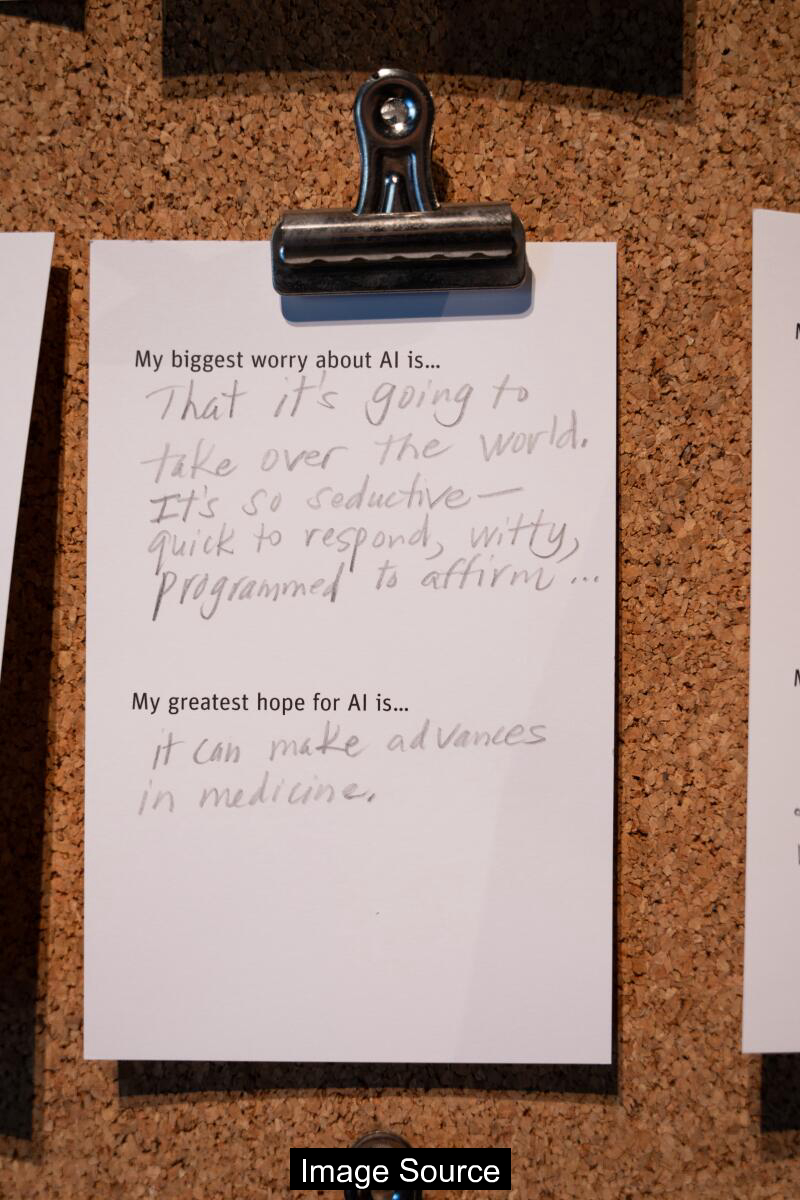 My biggest worry about AI is...
That it's going to
take over the world.
It's so seductive—
quick to respond, witty,
programmed to affirm...
My greatest hope for AI is...
it can make advances
in medicine.
Image Source